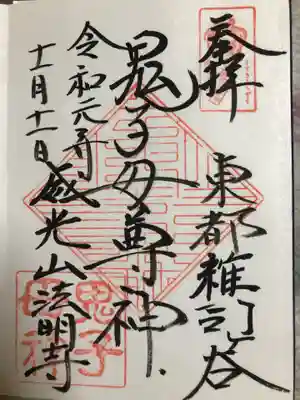 奉拝
東都雑司ヶ谷
鬼子母尊神
令和元年
十一月十一日
威光山法明寺
鬼子母神